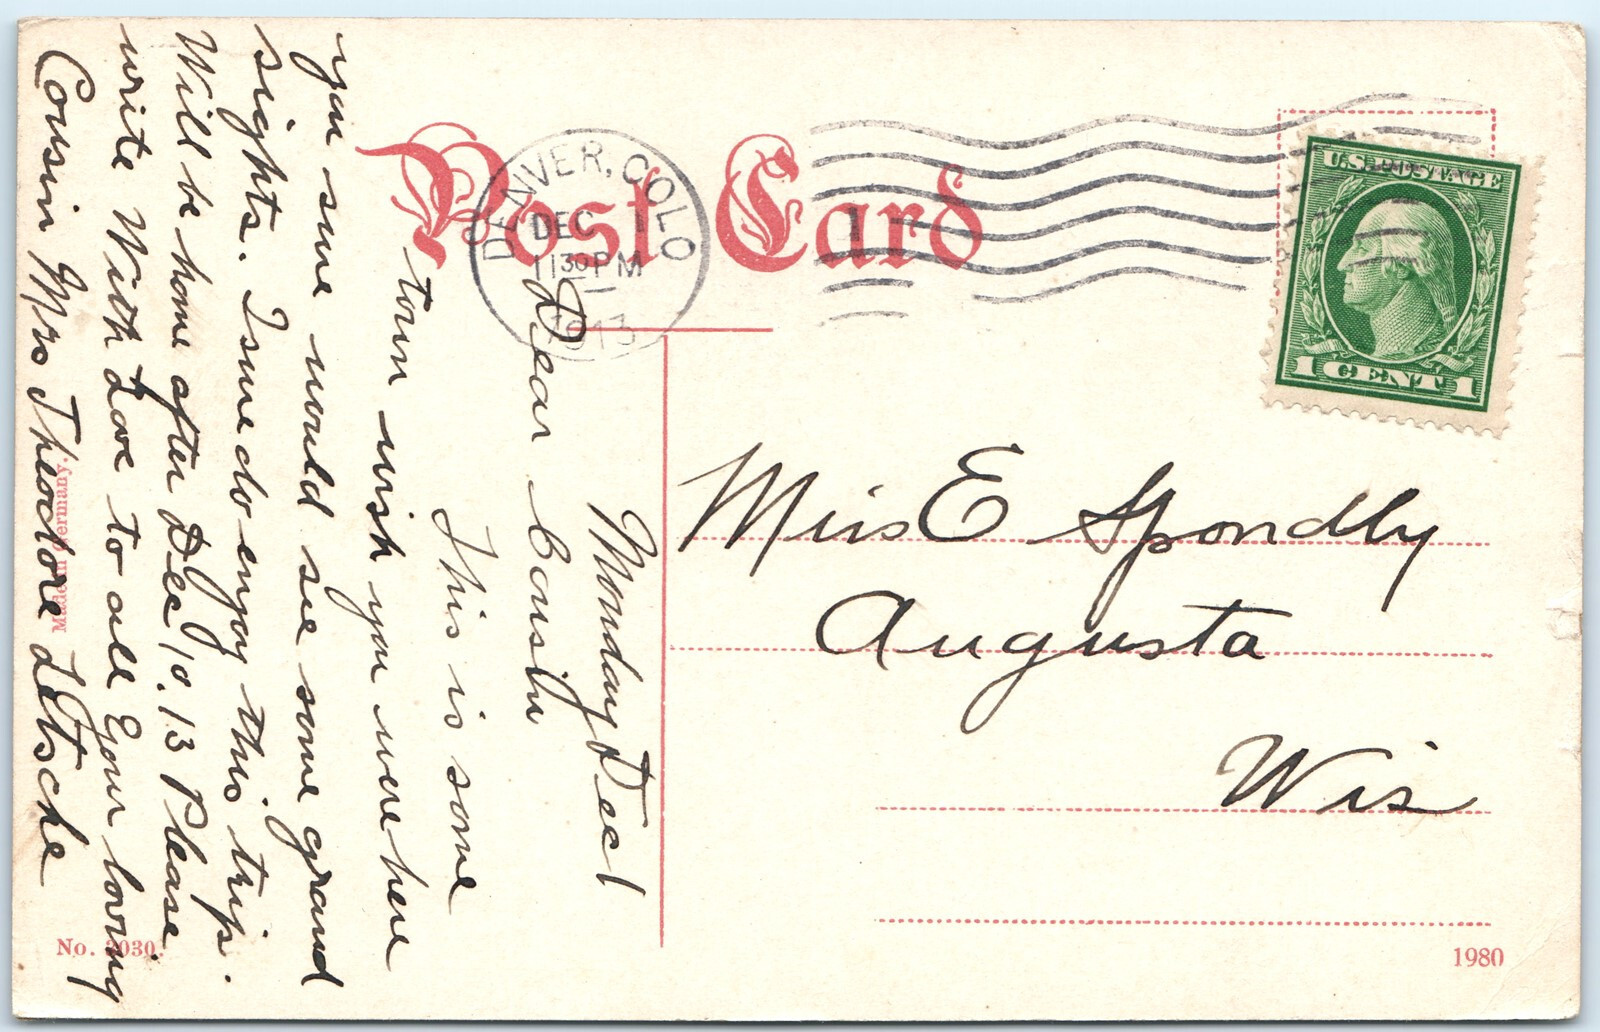 Post Card
DENVER, COLO
DEC 1
1130 PM
1913
1
U.S. POSTAGE
1 CENT 1
Monday Dec 1
Dear Cousin
This is some
town wish you were here
you sure would see some grand
sights. I sure do enjoy this trip.
Will be home after Dec 10, 13 Please
write With Love to all Your loving
Cousin Mrs Theodore Letsche
Miss E Spondly
Augusta
Wis
Made in Germany.
No. 2030
1980